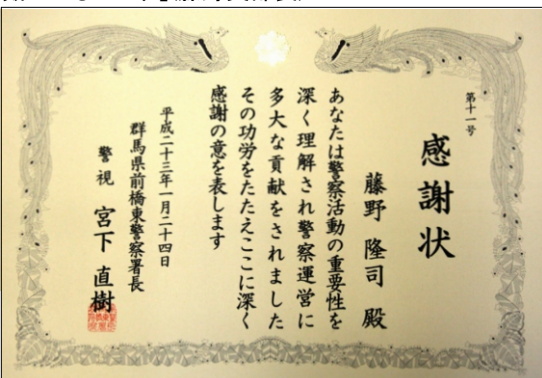 第十一号
感謝状
藤野隆司殿
あなたは警察活動の重要性を
深く理解され警察運営に
多大な貢献をされました
その功労をたたえここに深く
感謝の意を表します
平成二十三年一月二十四日
群馬県前橋東警察署長
警視 宮下直樹